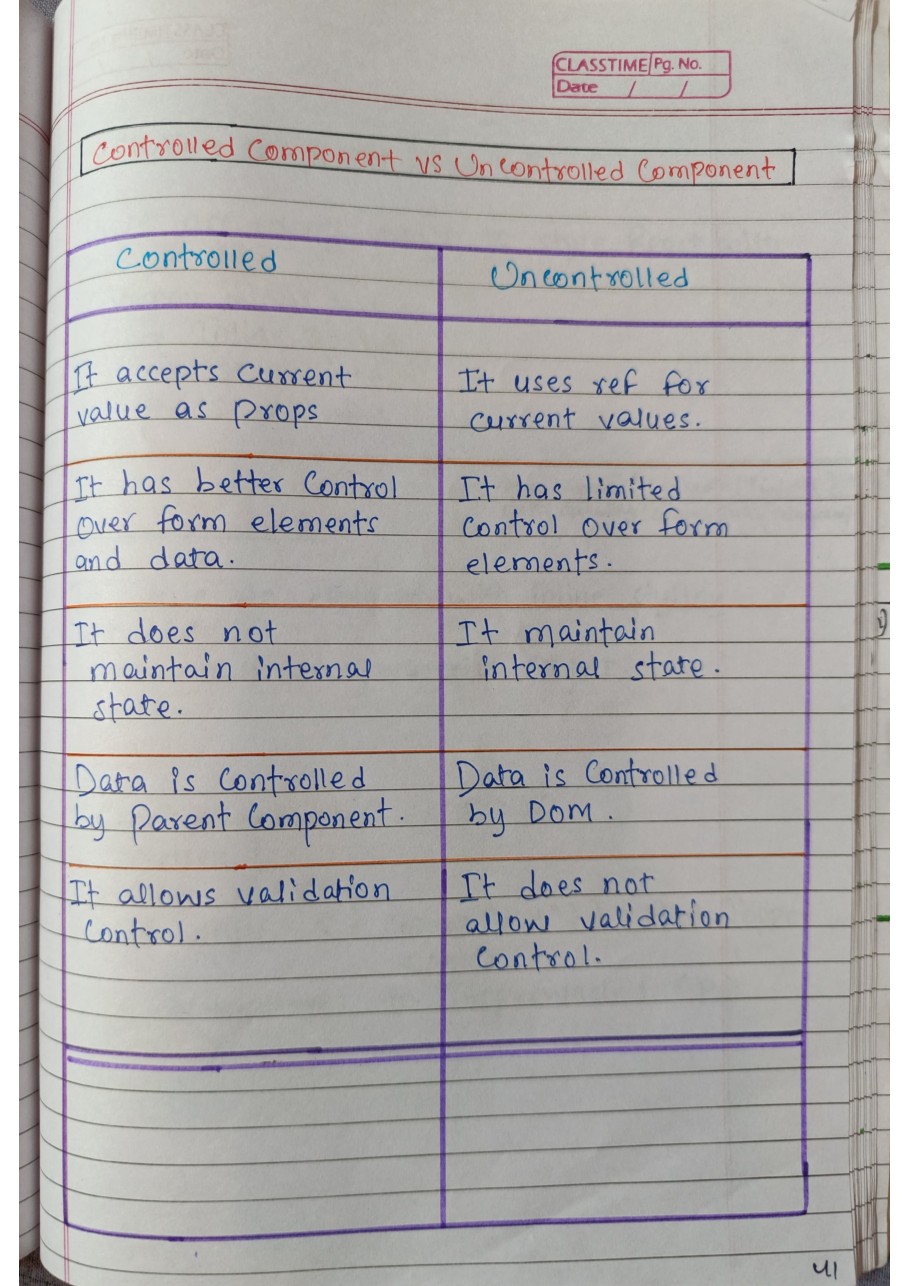 CLASSTIME Pg. No.
Date / /
Controlled Component vs Uncontrolled Component
Controlled
Uncontrolled
It accepts current
value as props
It uses ref for
current values.
It has better Control
over form elements
and data.
It has limited
control over form
elements.
It does not
maintain internal
state.
It maintain
internal state.
Data is Controlled
by Parent Component.
Data is Controlled
by DOM.
It allows validation
Control.
It does not
allow validation
Control.
41